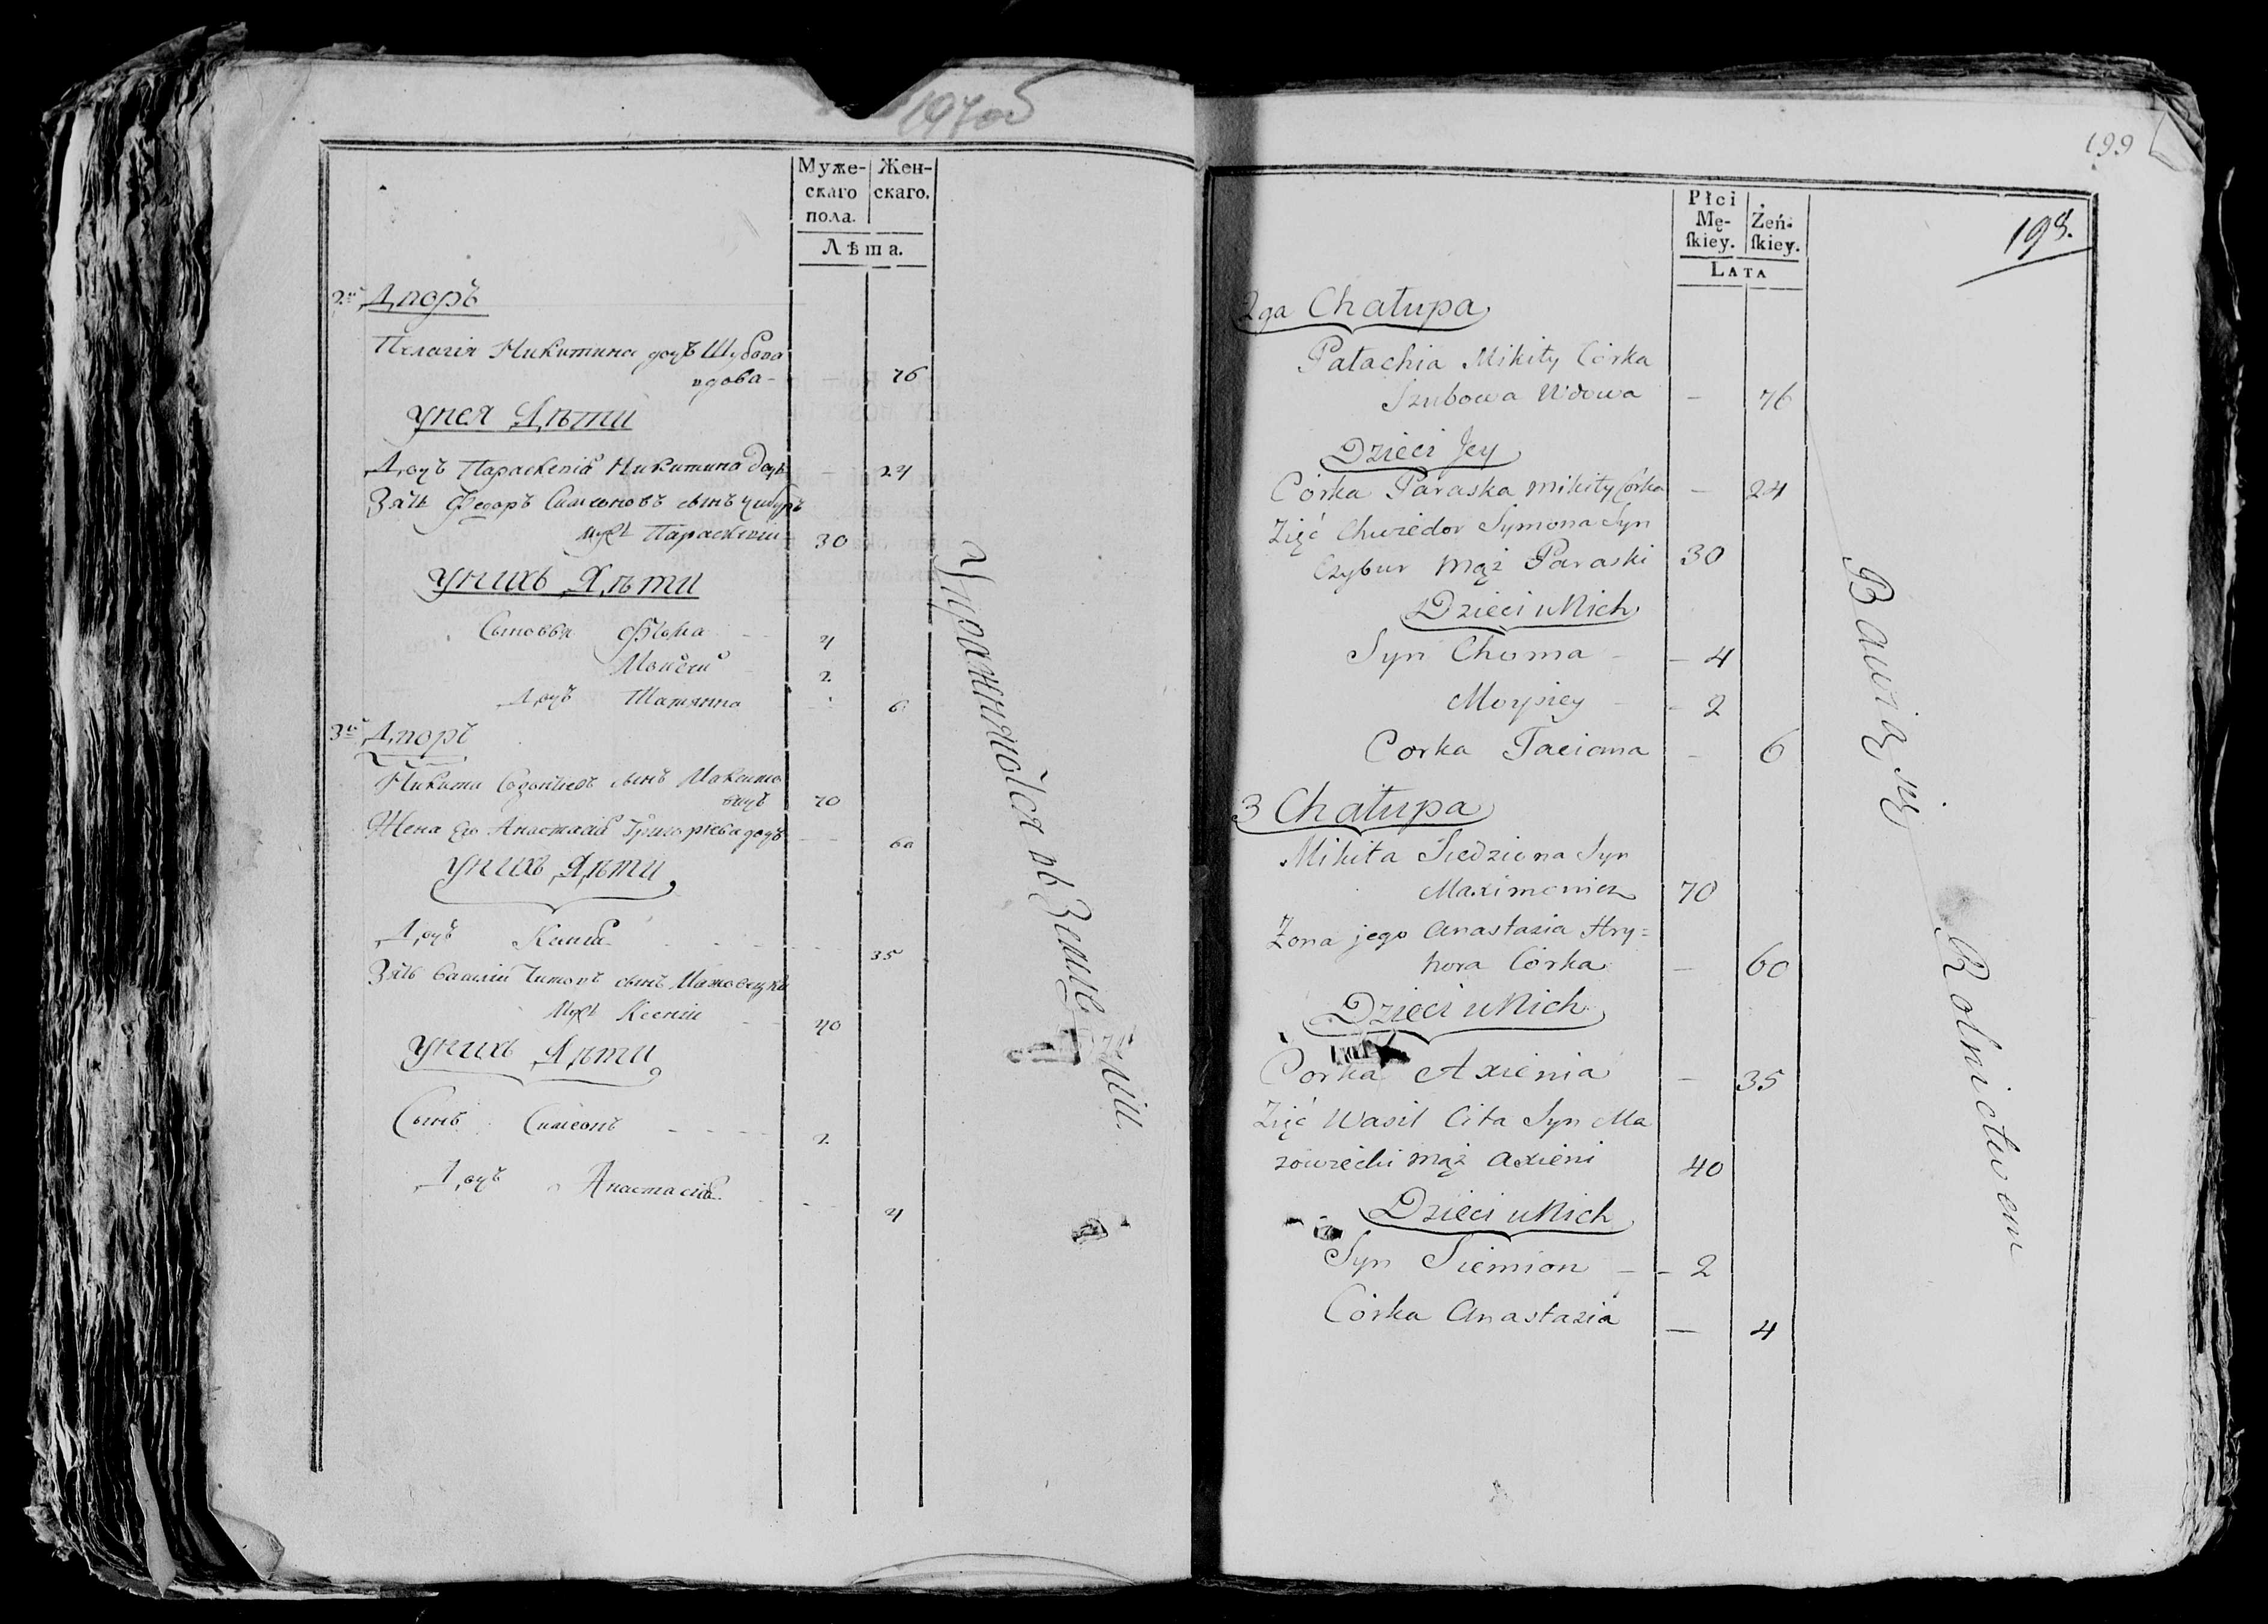 197об
Муже- Жен-
скаго скаго.
пола.
Лѣта.
2й Дворъ
Пелагія Никитина дочь Шубова
вдова - 76
у нея Дѣти
Дочь Параскевія Никитина дочь - 24
Зять Федоръ Симеоновъ сынъ Чибуръ
мужъ Параскевіи 30
у нихъ Дѣти
Сыновья Фома 4
Моисей 2
Дочь Татянна 6
3й Дворъ
Никита сынъ Максимо
вичъ 70
Жена Его Анастасія Григорьева дочь 60
у нихъ Дѣти
Дочь 35
Зять Василій Титовъ сынъ Мазовецки
мужъ Ксеніи 40
у нихъ Дѣти
Сынъ Симеонъ 2
Дочь Анастасія 4
Упражняются въ
199
198.
Płci
Mę- Żeń-
skiey. skiey.
LATA
2ga Chałupa
Pałachia Mikity Córka
Szubowa Wdowa — 76
Dzieci Jey
Córka Paraska Mikity Córka — 24
Zięć Chwiedor Symona Syn
Czybur Mąż Paraski 30
Dzieci u Nich
Syn Choma — 4
Moysiey — 2
Corka Taciana — 6
3 Chałupa
Mikita Siedziona Syn
Maximowicz 70
Żona jego Anastazia Hry=
hora Córka — 60
Dzieci u Nich
Corka Axienia — 35
Zięć Wasil Cita Syn Ma
zowiecki Mąż Axieni 40
Dzieci u Nich
Syn Siemion — 2
Córka Anastazia — 4
Bawią się Rolnictwem